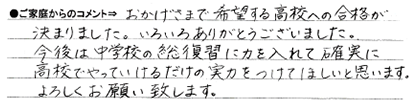 ●ご家庭からのコメント⇒ おかげさまで希望する高校への合格が
決まりました。いろいろありがとうございました。
今後は中学校の総復習に力を入れて確実に
高校でやっていけるだけの実力をつけてほしいと思います。
よろしくお願い致します。